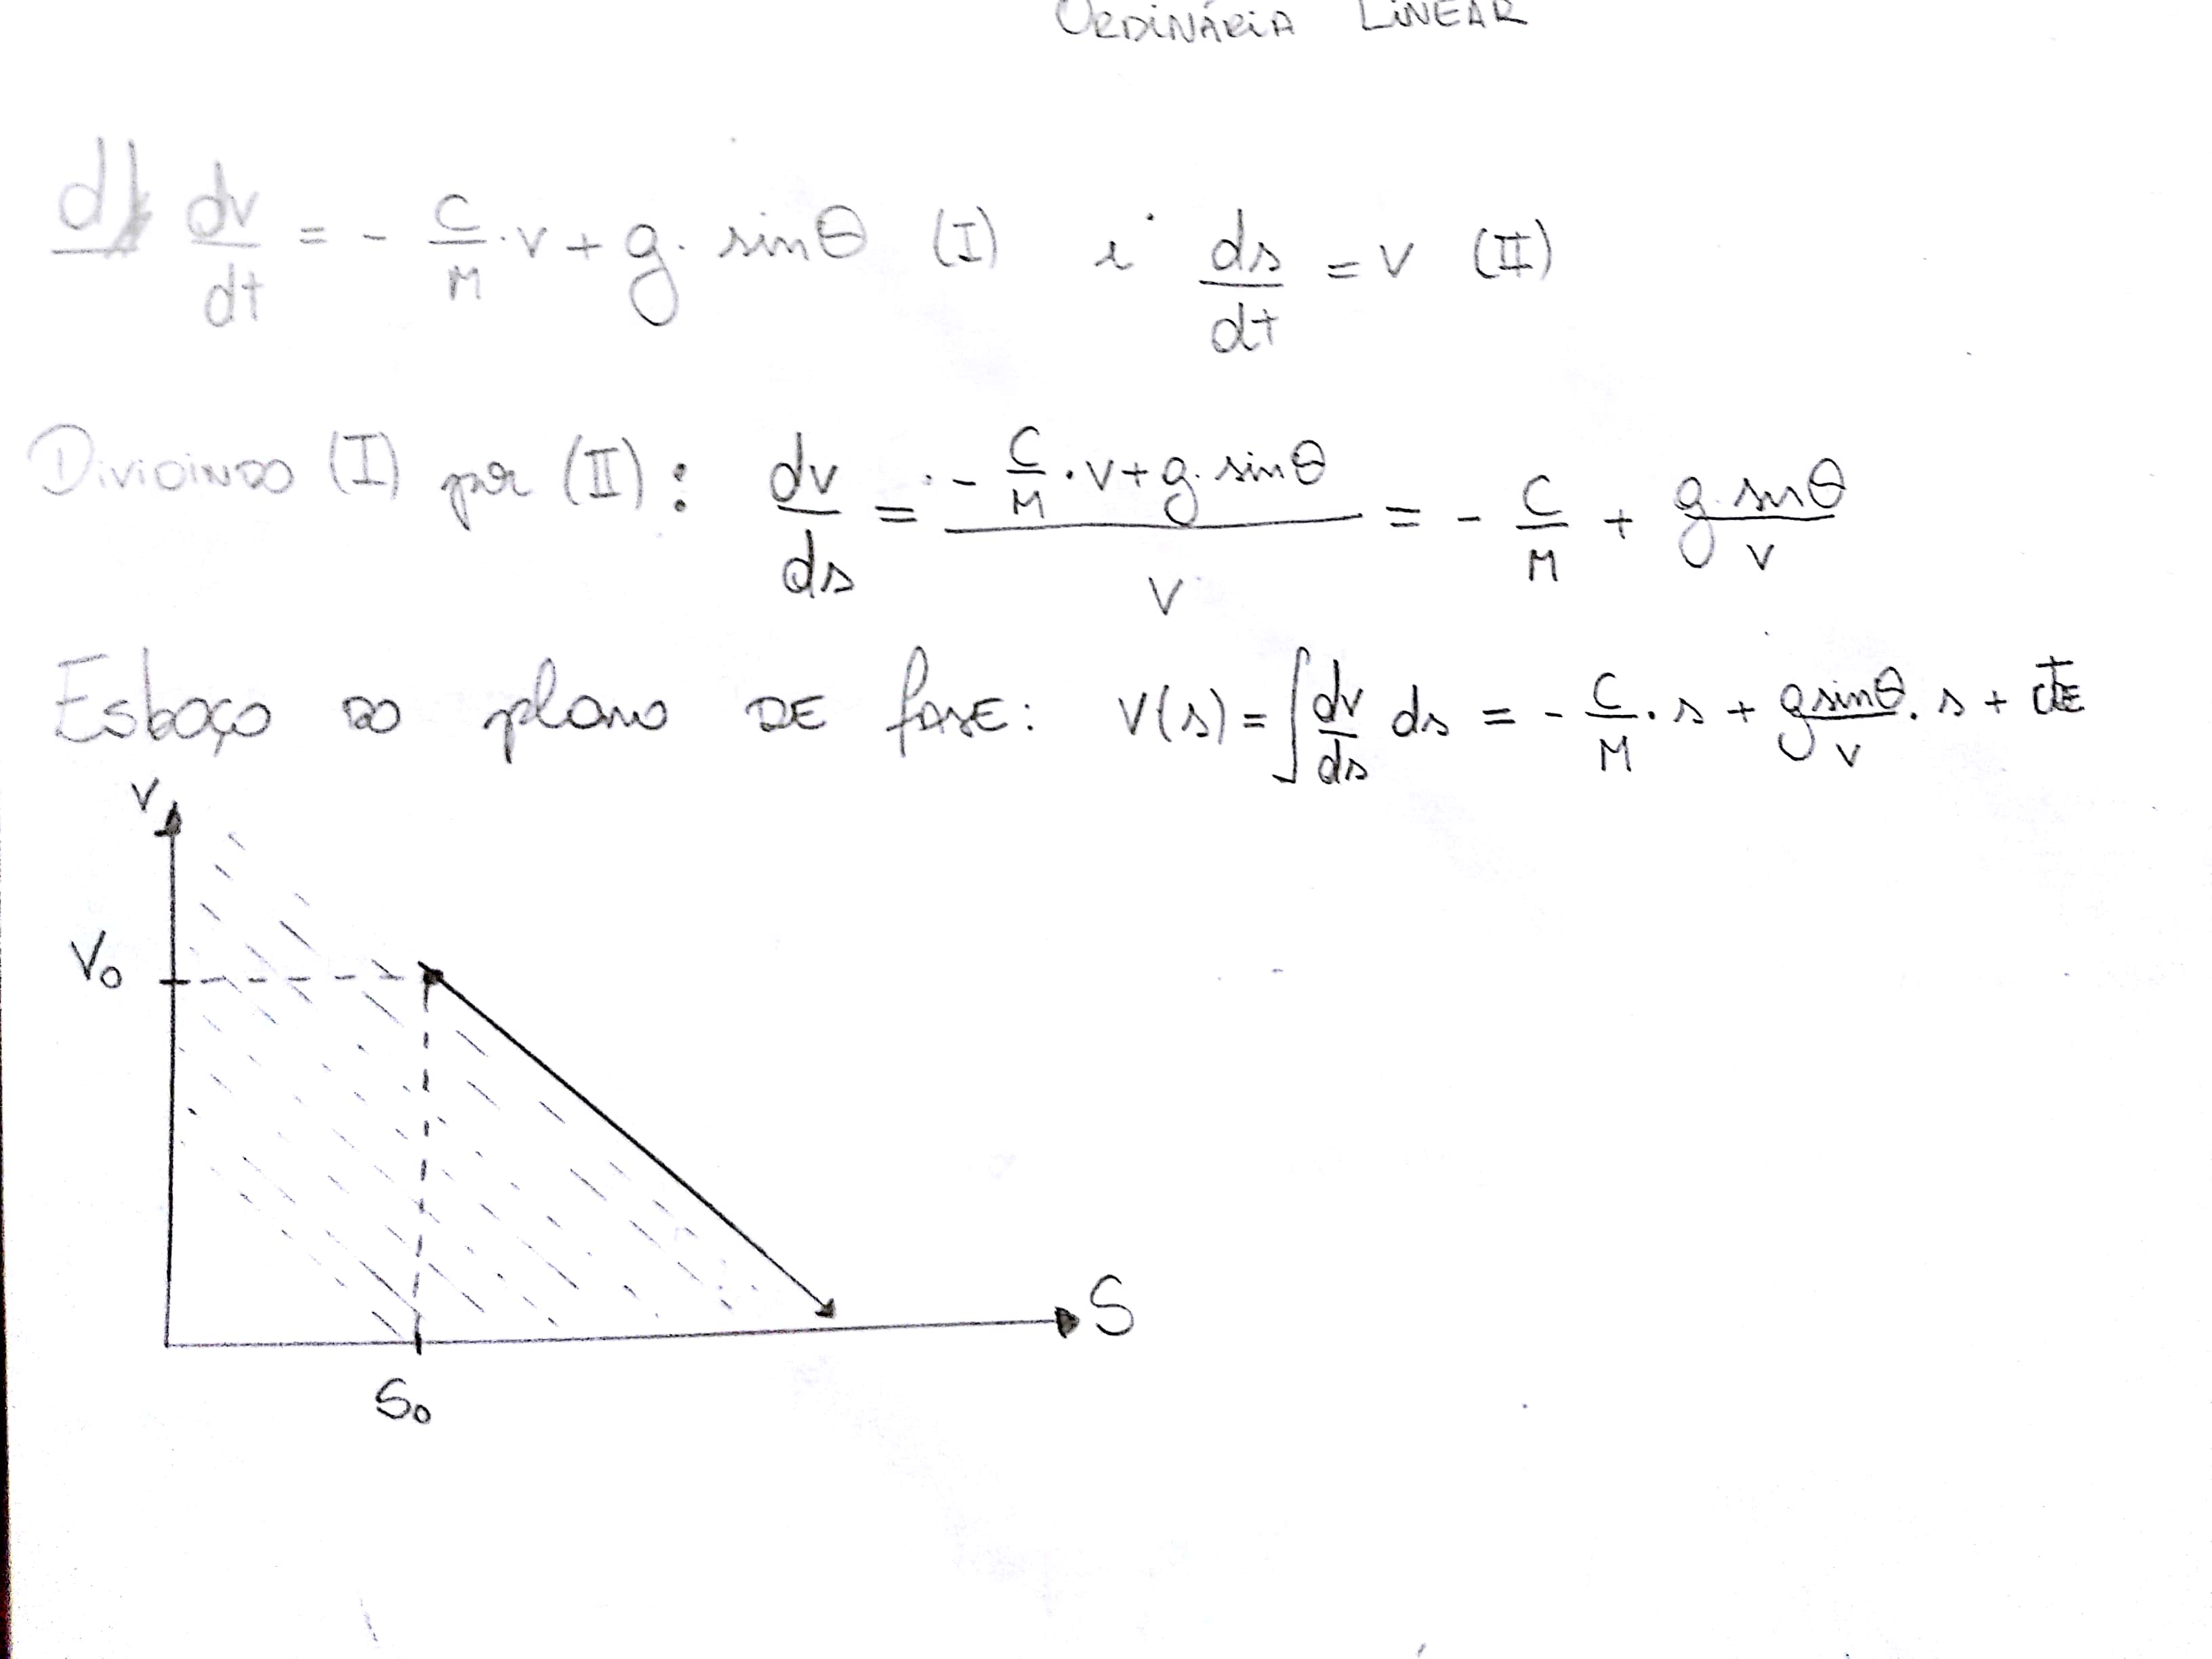 ORDINÁRIA LINEAR
d) dv/dt = - C/M · v + g · sinθ (I) e ds/dt = v (II)
DIVIDINDO (I) por (II): dv/ds = (- C/M · v + g · sinθ)/v = - C/M + g sinθ/v
Esboço DO plano DE fASE: V(s) = ∫ dv/ds ds = - C/M · s + g sinθ/v · s + cte
v
V₀
S
S₀